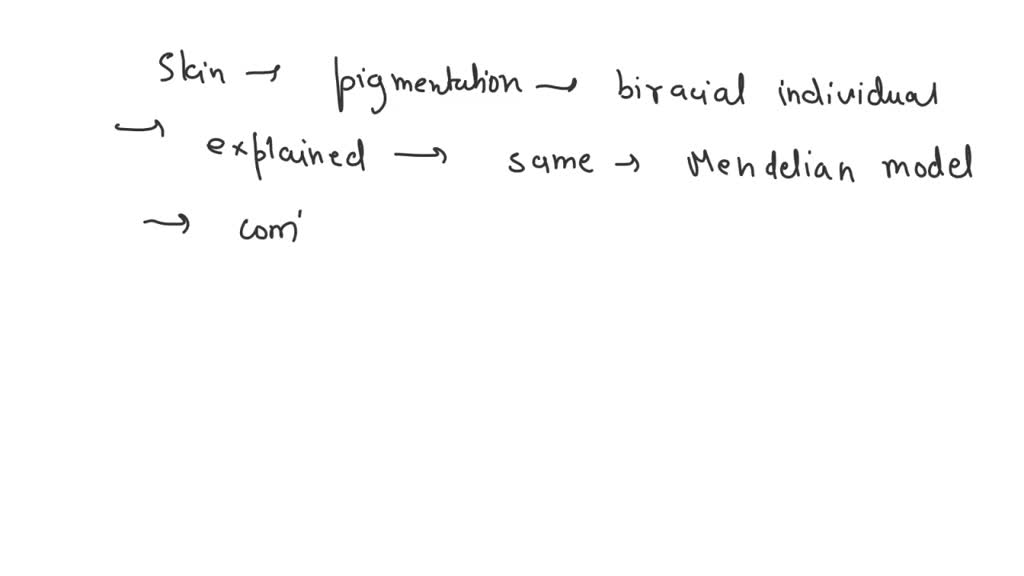 Skin → pigmentation → biracial individual
→ explained → same → Mendelian model
→ com'